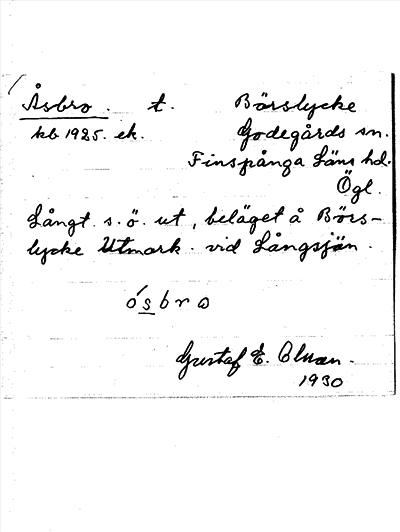 Åsbro. t. Börslycke
kb 1925. ek. Godegårds sn.
Finspånga Läns hd.
Ögl.
Långt s.ö. ut, beläget å Börs-
lycke Utmark. vid Långsjön.
ósbro
Gustaf E.
1930